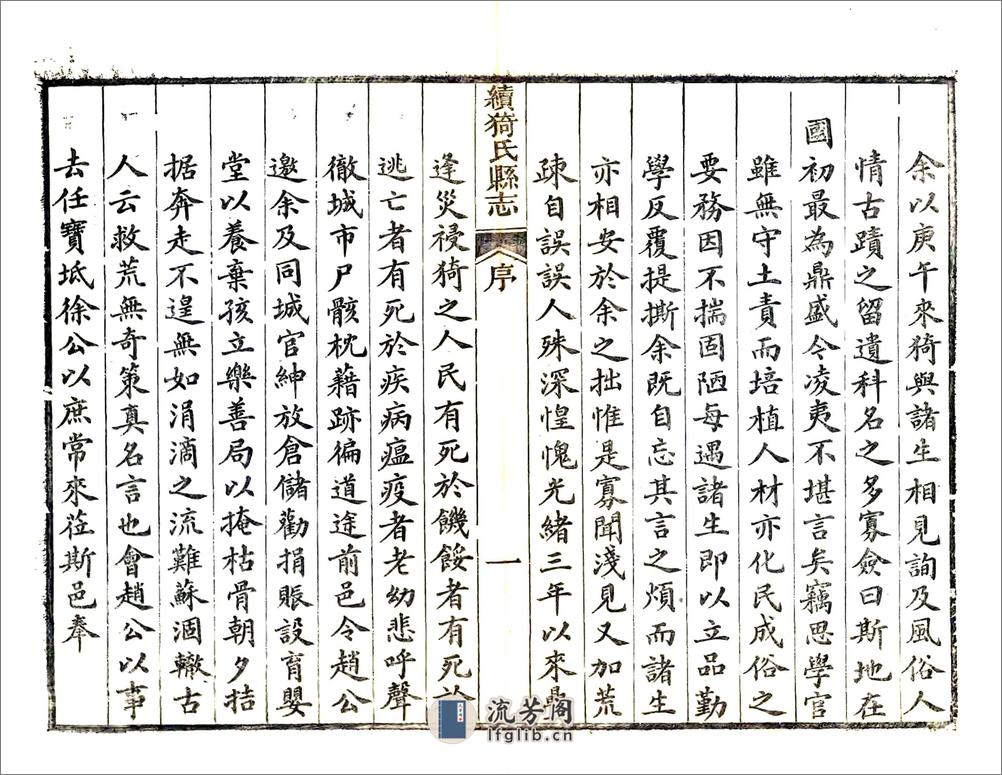 余以庚午來猗與諸生相見詢及風俗人
情古蹟之留遺科名之多寡僉曰斯地在
國初最為鼎盛今凌夷不堪言矣竊思學官
雖無守土責而培植人材亦化民成俗之
要務因不揣固陋每遇諸生即以立品勤
學反覆提撕余既自忘其言之煩而諸生
亦相安於余之拙惟是寡聞淺見又加荒
疎自誤誤人殊深惶愧光緒三年以來疊
續猗氏縣志
序
一
逢災祲猗之人民有死於饑餒者有死於
逃亡者有死於疾病瘟疫者老幼悲呼聲
徹城市尸骸枕藉跡徧道途前邑令趙公
邀余及同城官紳放倉儲勸捐賑設育嬰
堂以養棄孩立樂善局以掩枯骨朝夕拮
据奔走不遑無如涓滴之流難蘇涸轍古
人云救荒無奇策真名言也會趙公以事
去任寶坻徐公以庶常來莅斯邑奉
流芳阁
lfglib.cn